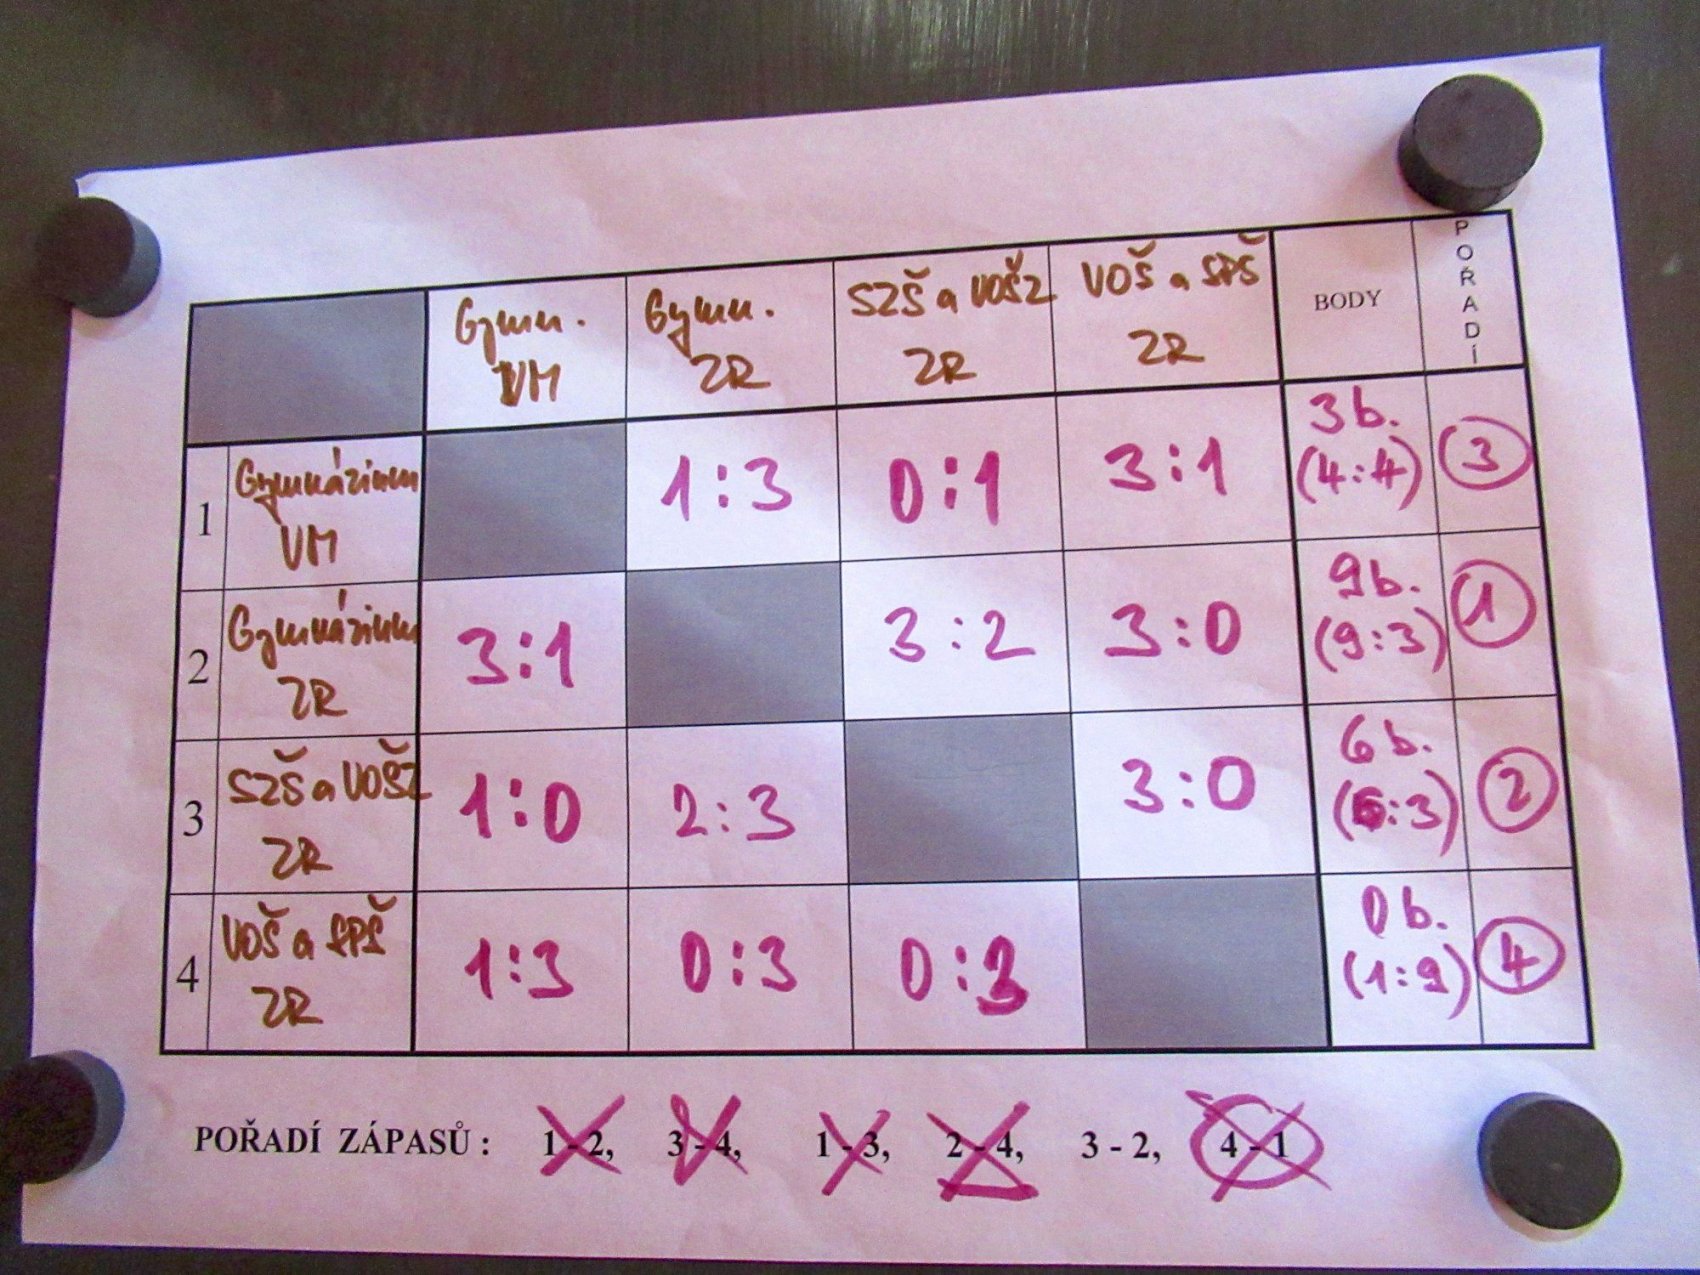 Gymn. VM Gymn. ZR SZŠ a VOŠZ ZR VOŠ a SPŠ ZR BODY POŘADÍ
1 Gymnázium VM 1:3 0:1 3:1 3b. (4:4) 3
2 Gymnázium ZR 3:1 3:2 3:0 9b. (9:3) 1
3 SZŠ a VOŠZ ZR 1:0 2:3 3:0 6b. (6:3) 2
4 VOŠ a SPŠ ZR 1:3 0:3 0:3 0b. (1:9) 4
POŘADÍ ZÁPASŮ : 1 - 2, 3 - 4, 1 - 3, 2 - 4, 3 - 2, 4 - 1